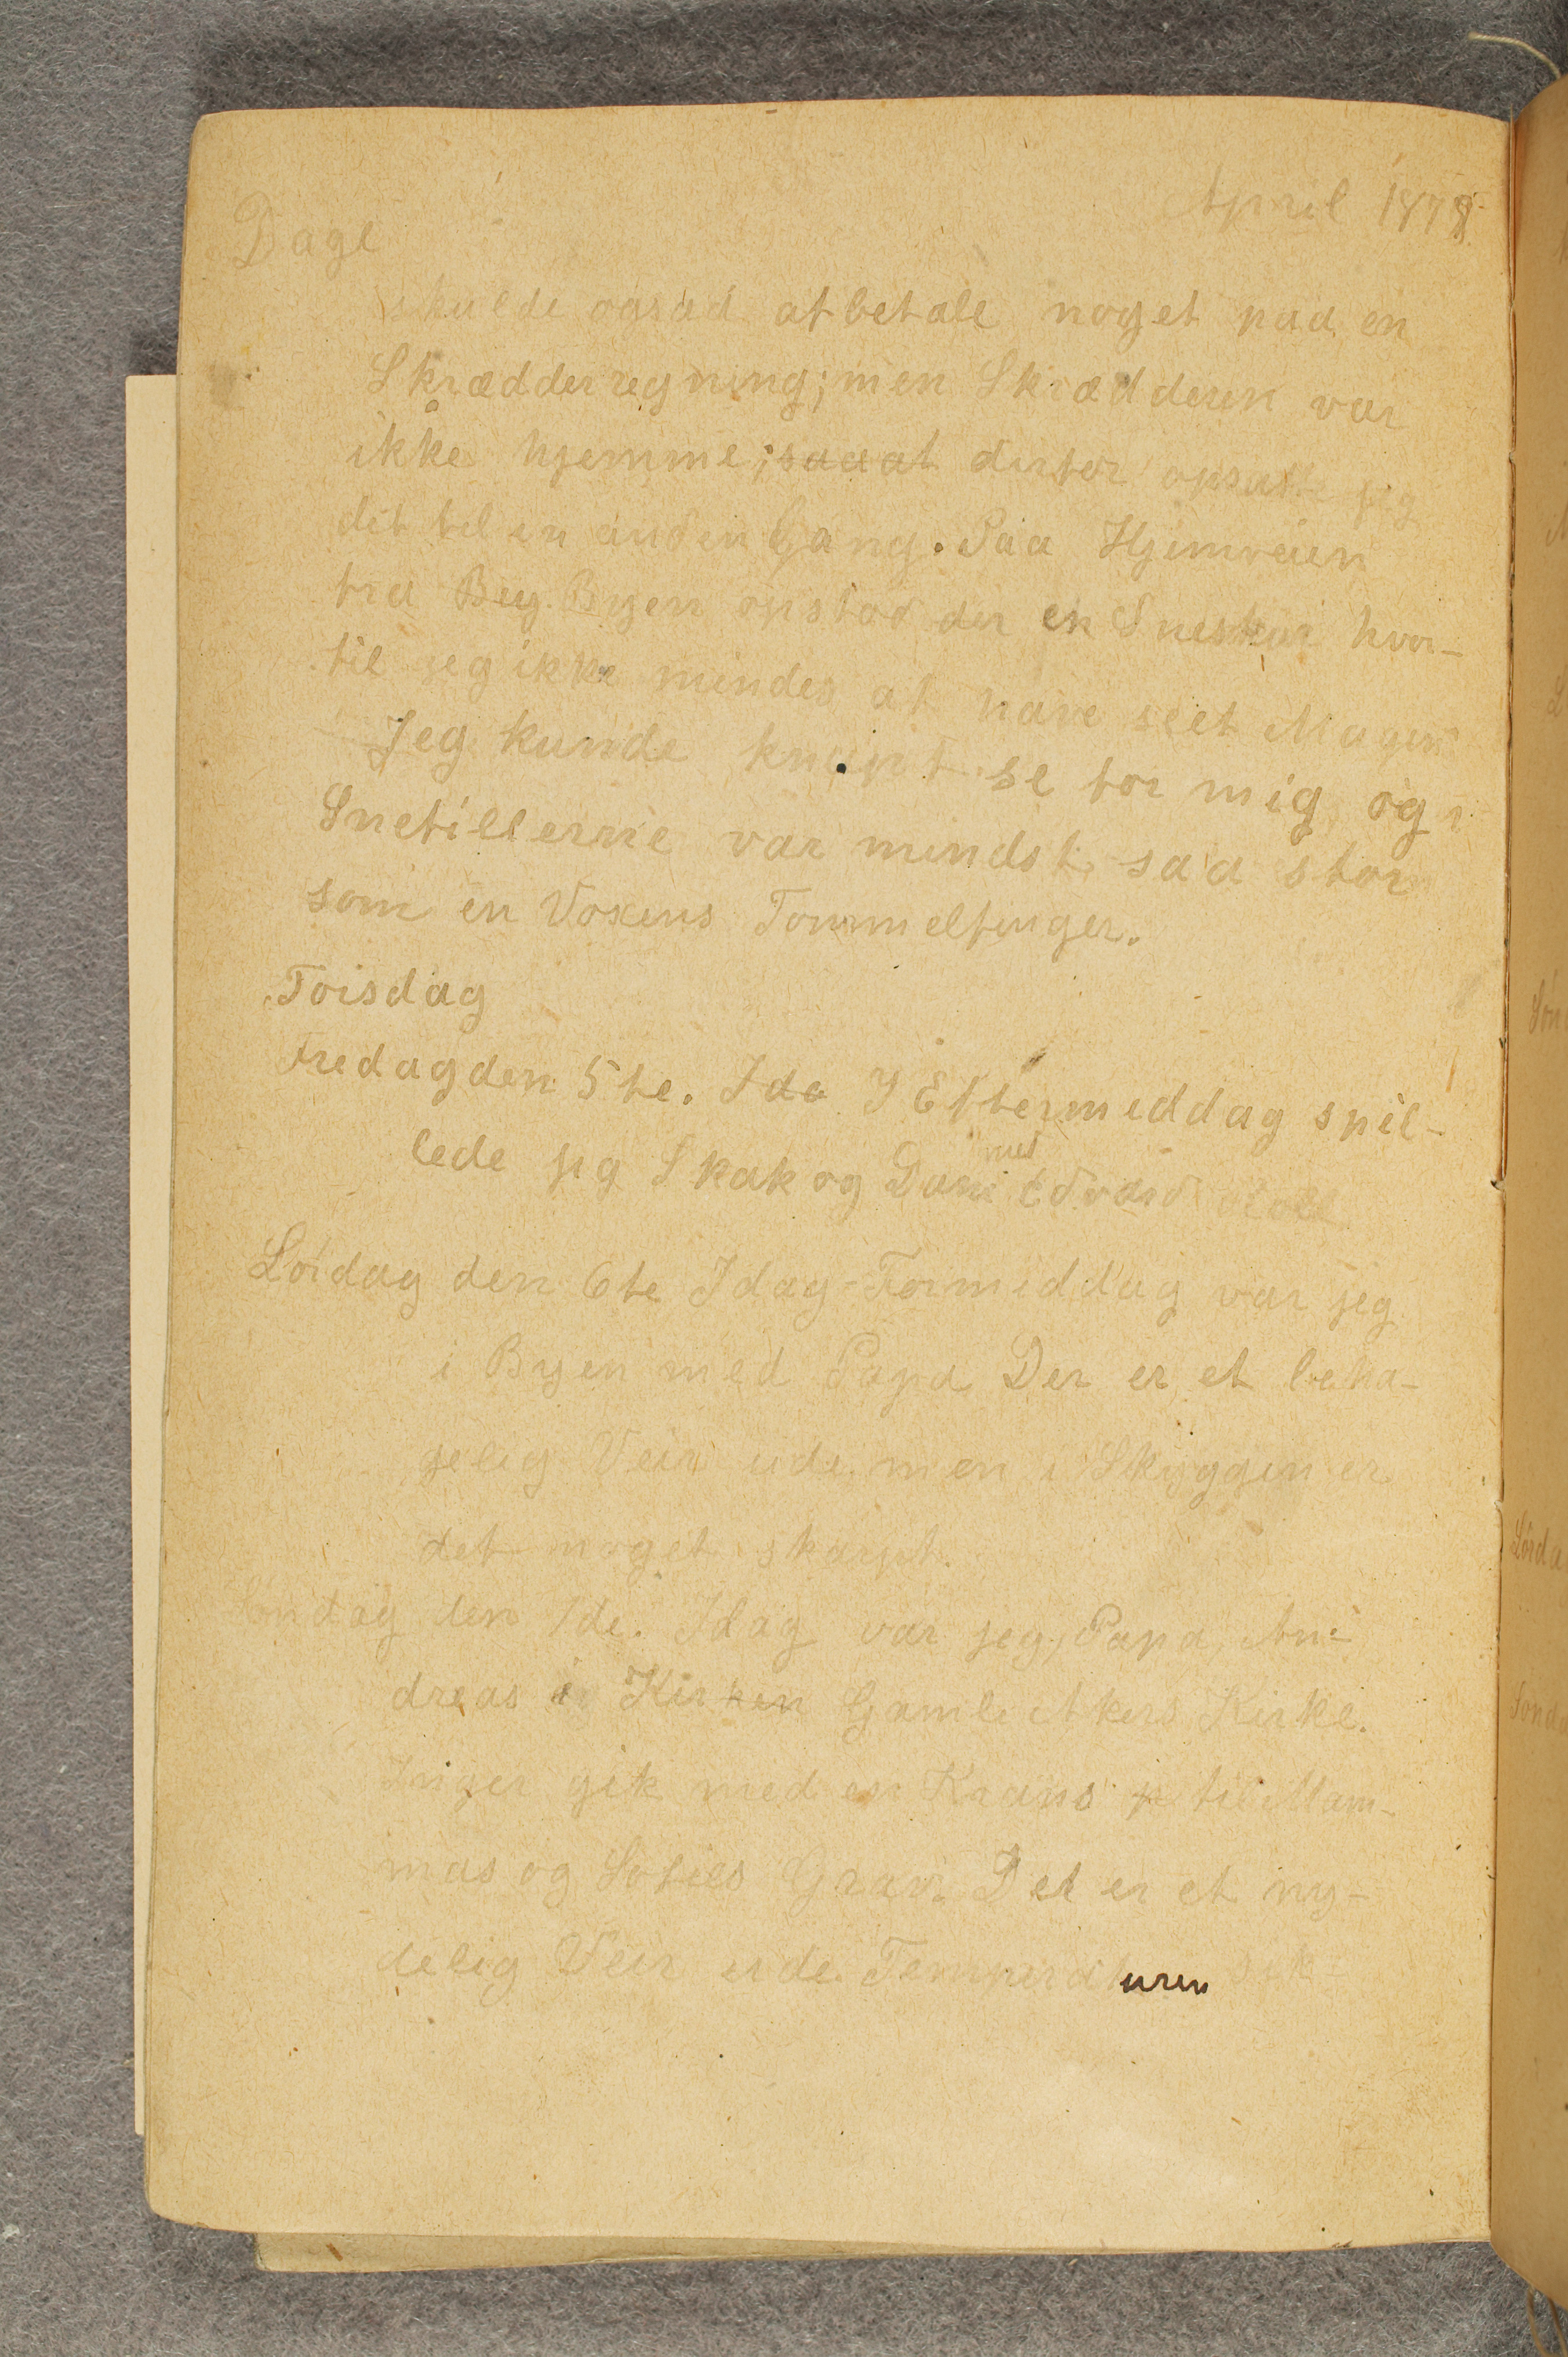 April 1878.
Dage
skulde ogsaa afbetale noget paa en
Skrædderregning; men Skrædderen var
ikke hjemme; saaat derfor opsatte jeg
det til en anden Gang. Paa Hjemveien
fra Bug. Byen opstod der en Sneskur hvor-
til jeg ikke mindes at have seet Magen
Jeg kunde knapt se for mig og
Snefillerne var mindst saa stor
som en Voxens Tommelfinger.
Torsdag
Fredag den 5te. Ida I Eftermiddag spil-
lede jeg Skak og Dam med Edvard
Lördag den 6te Idag-Formiddag var jeg
i Byen med Papa Der er et beha-
gelig Veir ude men i Skyggen er
det noget skarpt.
Söndag den 7de. Idag var jeg, Papa, An-
dreas i Kirken Gamle Akers Kirke.
Inger gik med en Krans p til Mam-
mas og Sofies Grav. Det er et ny-
delig Veir ude. Temperaturen